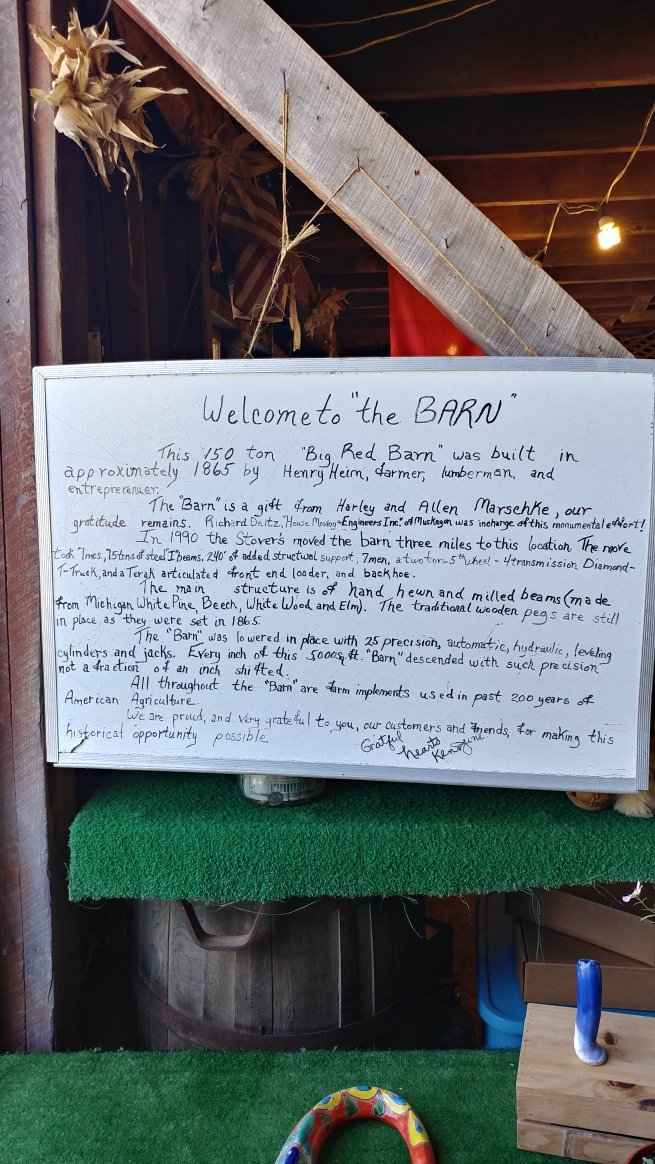 Welcome to "the BARN"
This 150 ton "Big Red Barn" was built in
approximately 1865 by Henry Heim, farmer, lumberman, and
entreprerenuer.
The "Barn" is a gift from Harley and Allen Marschke, our
gratitude remains. Richard Deitz, "House Moving Engineers Inc." of Muskegon was incharge of this monumental effort!
In 1990 the Stover's moved the barn three miles to this location. The move
took 7mos., 75tons of steel "I" beams, 240' of added structural support, 7men, a two ton 5th wheel - 4transmission Diamond-
T-Truck, and a Terak articulated front end loader, and backhoe.
The main structure is of hand hewn and milled beams (made
from Michigan White Pine, Beech, White Wood and Elm). The traditional wooden pegs are still
in place, as they were set in 1865.
The "Barn" was lowered in place with 25 precision, automatic, hydraulic, leveling
cylinders and jacks. Every inch of this 5000sq.ft. "Barn" descended with such precision
not a fraction of an inch shifted.
All throughout the "Barn" are farm implements used in past 200 years of
American Agriculture.
We are proud, and very grateful to you, our customers and friends, for making this
historical opportunity possible.
Gratful
hearts